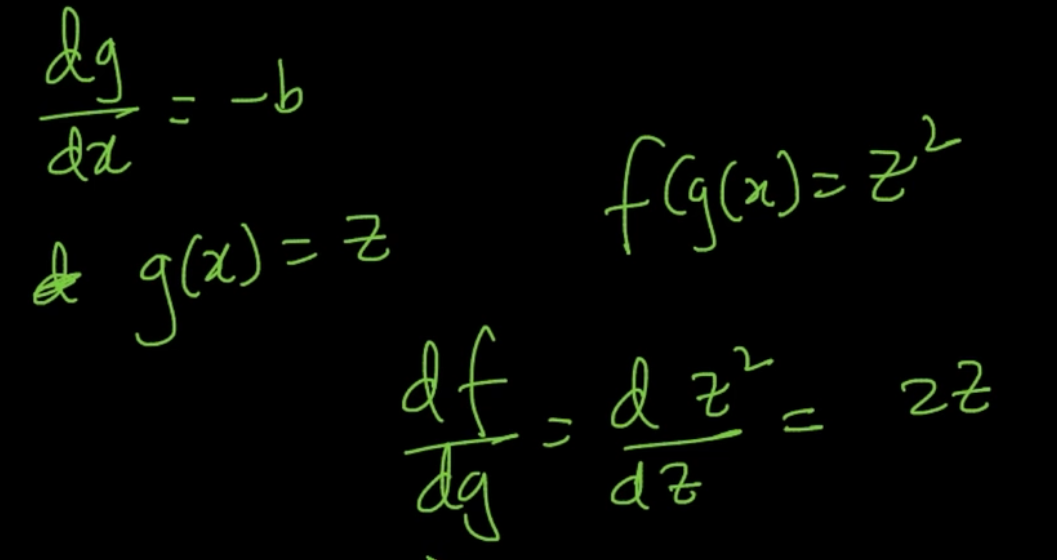 dg/dx = -b
f(g(x) = z²
g(x) = z
df/dg = d z²/dz = 2z